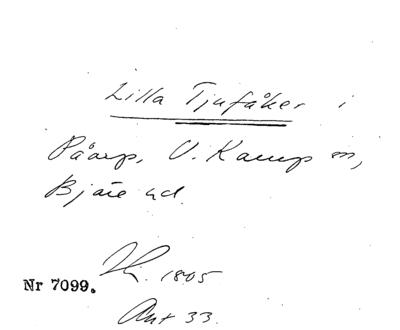 Lilla Tjufåker i
Påarp, V. Karup sn,
Bjäre hd.
Nr 7099. 1805
Akt 33.